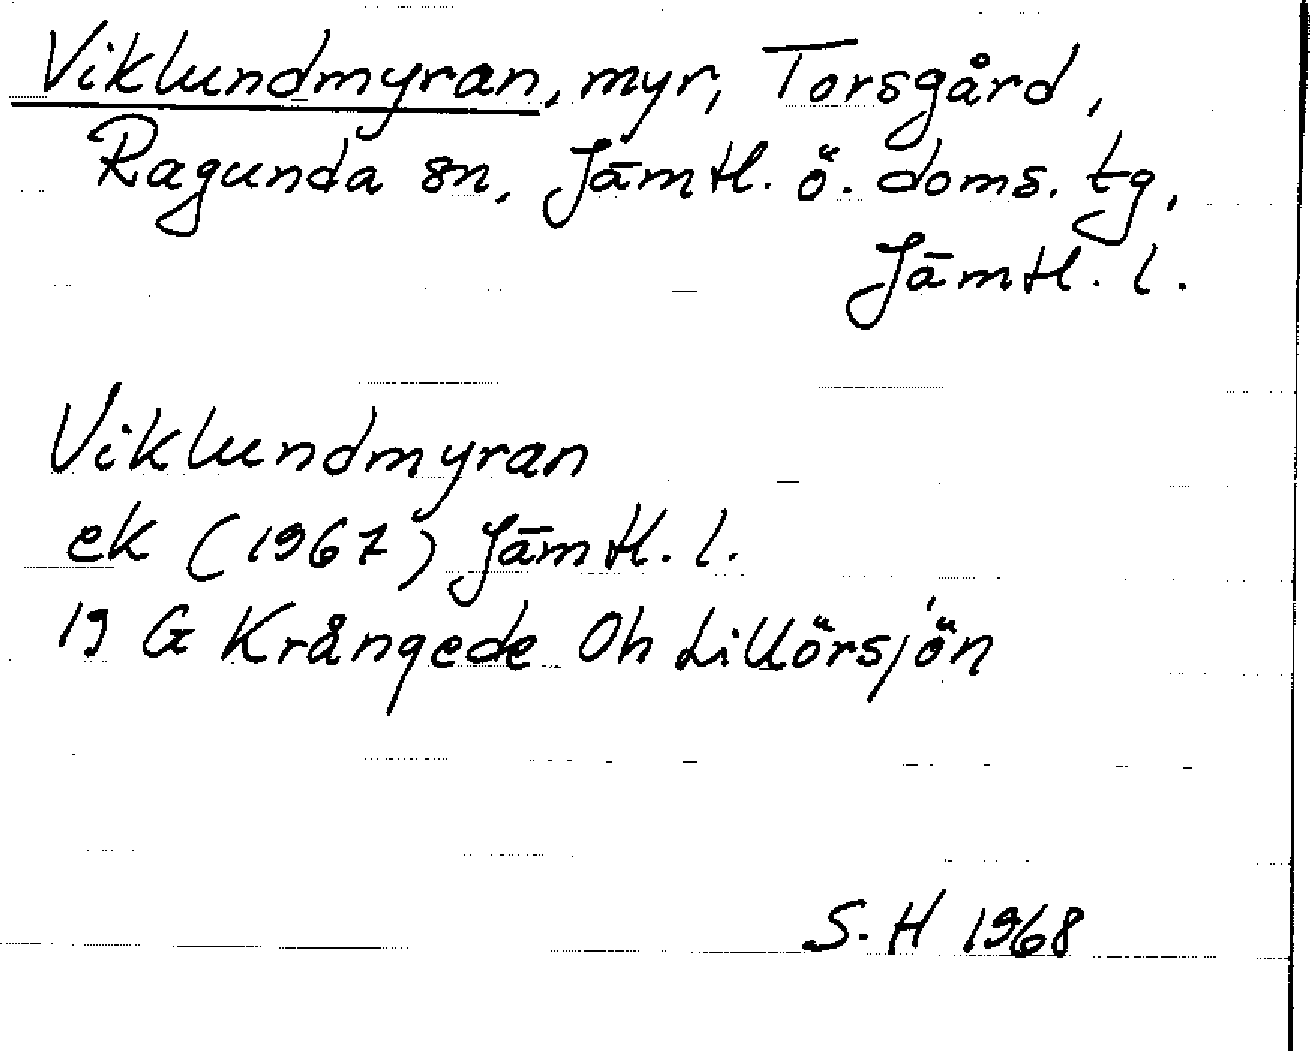 Viklundmyran, myr, Torsgård,
Ragunda sn, Jämtl. ö. doms. tg,
Jämtl. l.
Viklundmyran
ek (1967) Jämtl. l.
19 G Krångede Oh Lillörsjön
S. H 1968